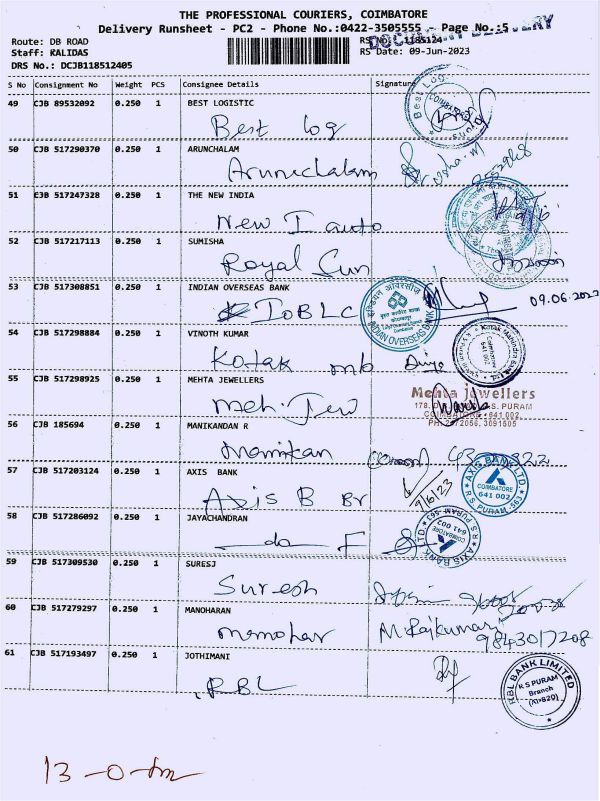 THE PROFESSIONAL COURIERS, COIMBATORE
Delivery Runsheet - PC2 - Phone No.:0422-3505555 - Page No.:5
Route: DB ROAD
RS No.: 1185124
Staff: KALIDAS
RS Date: 09-Jun-2023
DRS No.: DCJB118512405
S No Consignment No Weight PCS Consignee Details Signature
49 CJB 89532092 0.250 1 BEST LOGISTIC
Best Log
50 CJB 517290370 0.250 1 ARUNCHALAM
Arunachalam
51 CJB 517247328 0.250 1 THE NEW INDIA
New I auto
52 CJB 517217113 0.250 1 SUMISHA
Royal Sun
53 CJB 517308851 0.250 1 INDIAN OVERSEAS BANK
IOB LC
INDIAN OVERSEAS BANK
09.06.202
54 CJB 517298884 0.250 1 VINOTH KUMAR
Kotak mb
Kotak Mahindra Bank Ltd.
641 002
55 CJB 517298925 0.250 1 MEHTA JEWELLERS
Meh. Jew
Mehta jewellers
R.S. PURAM
COIMBATORE - 641 002
PH: 2472056, 3091505
56 CJB 185694 0.250 1 MANIKANDAN R
57 CJB 517203124 0.250 1 AXIS BANK
Axis B Br
9/6/23
AXIS BANK LTD.
COIMBATORE
641 002
R S PURAM, 563
58 CJB 517286092 0.250 1 JAYACHANDRAN
do
AXIS BANK LTD.
641 002
59 CJB 517309530 0.250 1 SURESJ
Suresh
60 CJB 517279297 0.250 1 MANOHARAN
M. Rajkumari
9843017208
61 CJB 517193497 0.250 1 JOTHIMANI
RBL
RBL BANK LIMITED
R S PURAM
Branch
13